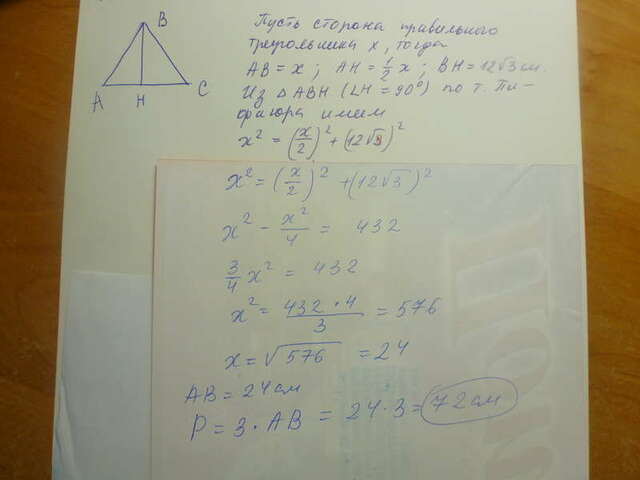 B
A H C
Пусть сторона правильного
треугольника x, тогда
AB = x ; AH = 1/2 x ; BH = 12√3 см.
Из △ABH (∠H = 90°) по т. Пи-
фагора имеем
x² = (x/2)² + (12√3)²
x² = (x/2)² + (12√3)²
x² - x²/4 = 432
3/4 x² = 432
x² = 432 * 4 / 3 = 576
x = √576 = 24
AB = 24 см
P = 3 · AB = 24 · 3 = 72 см